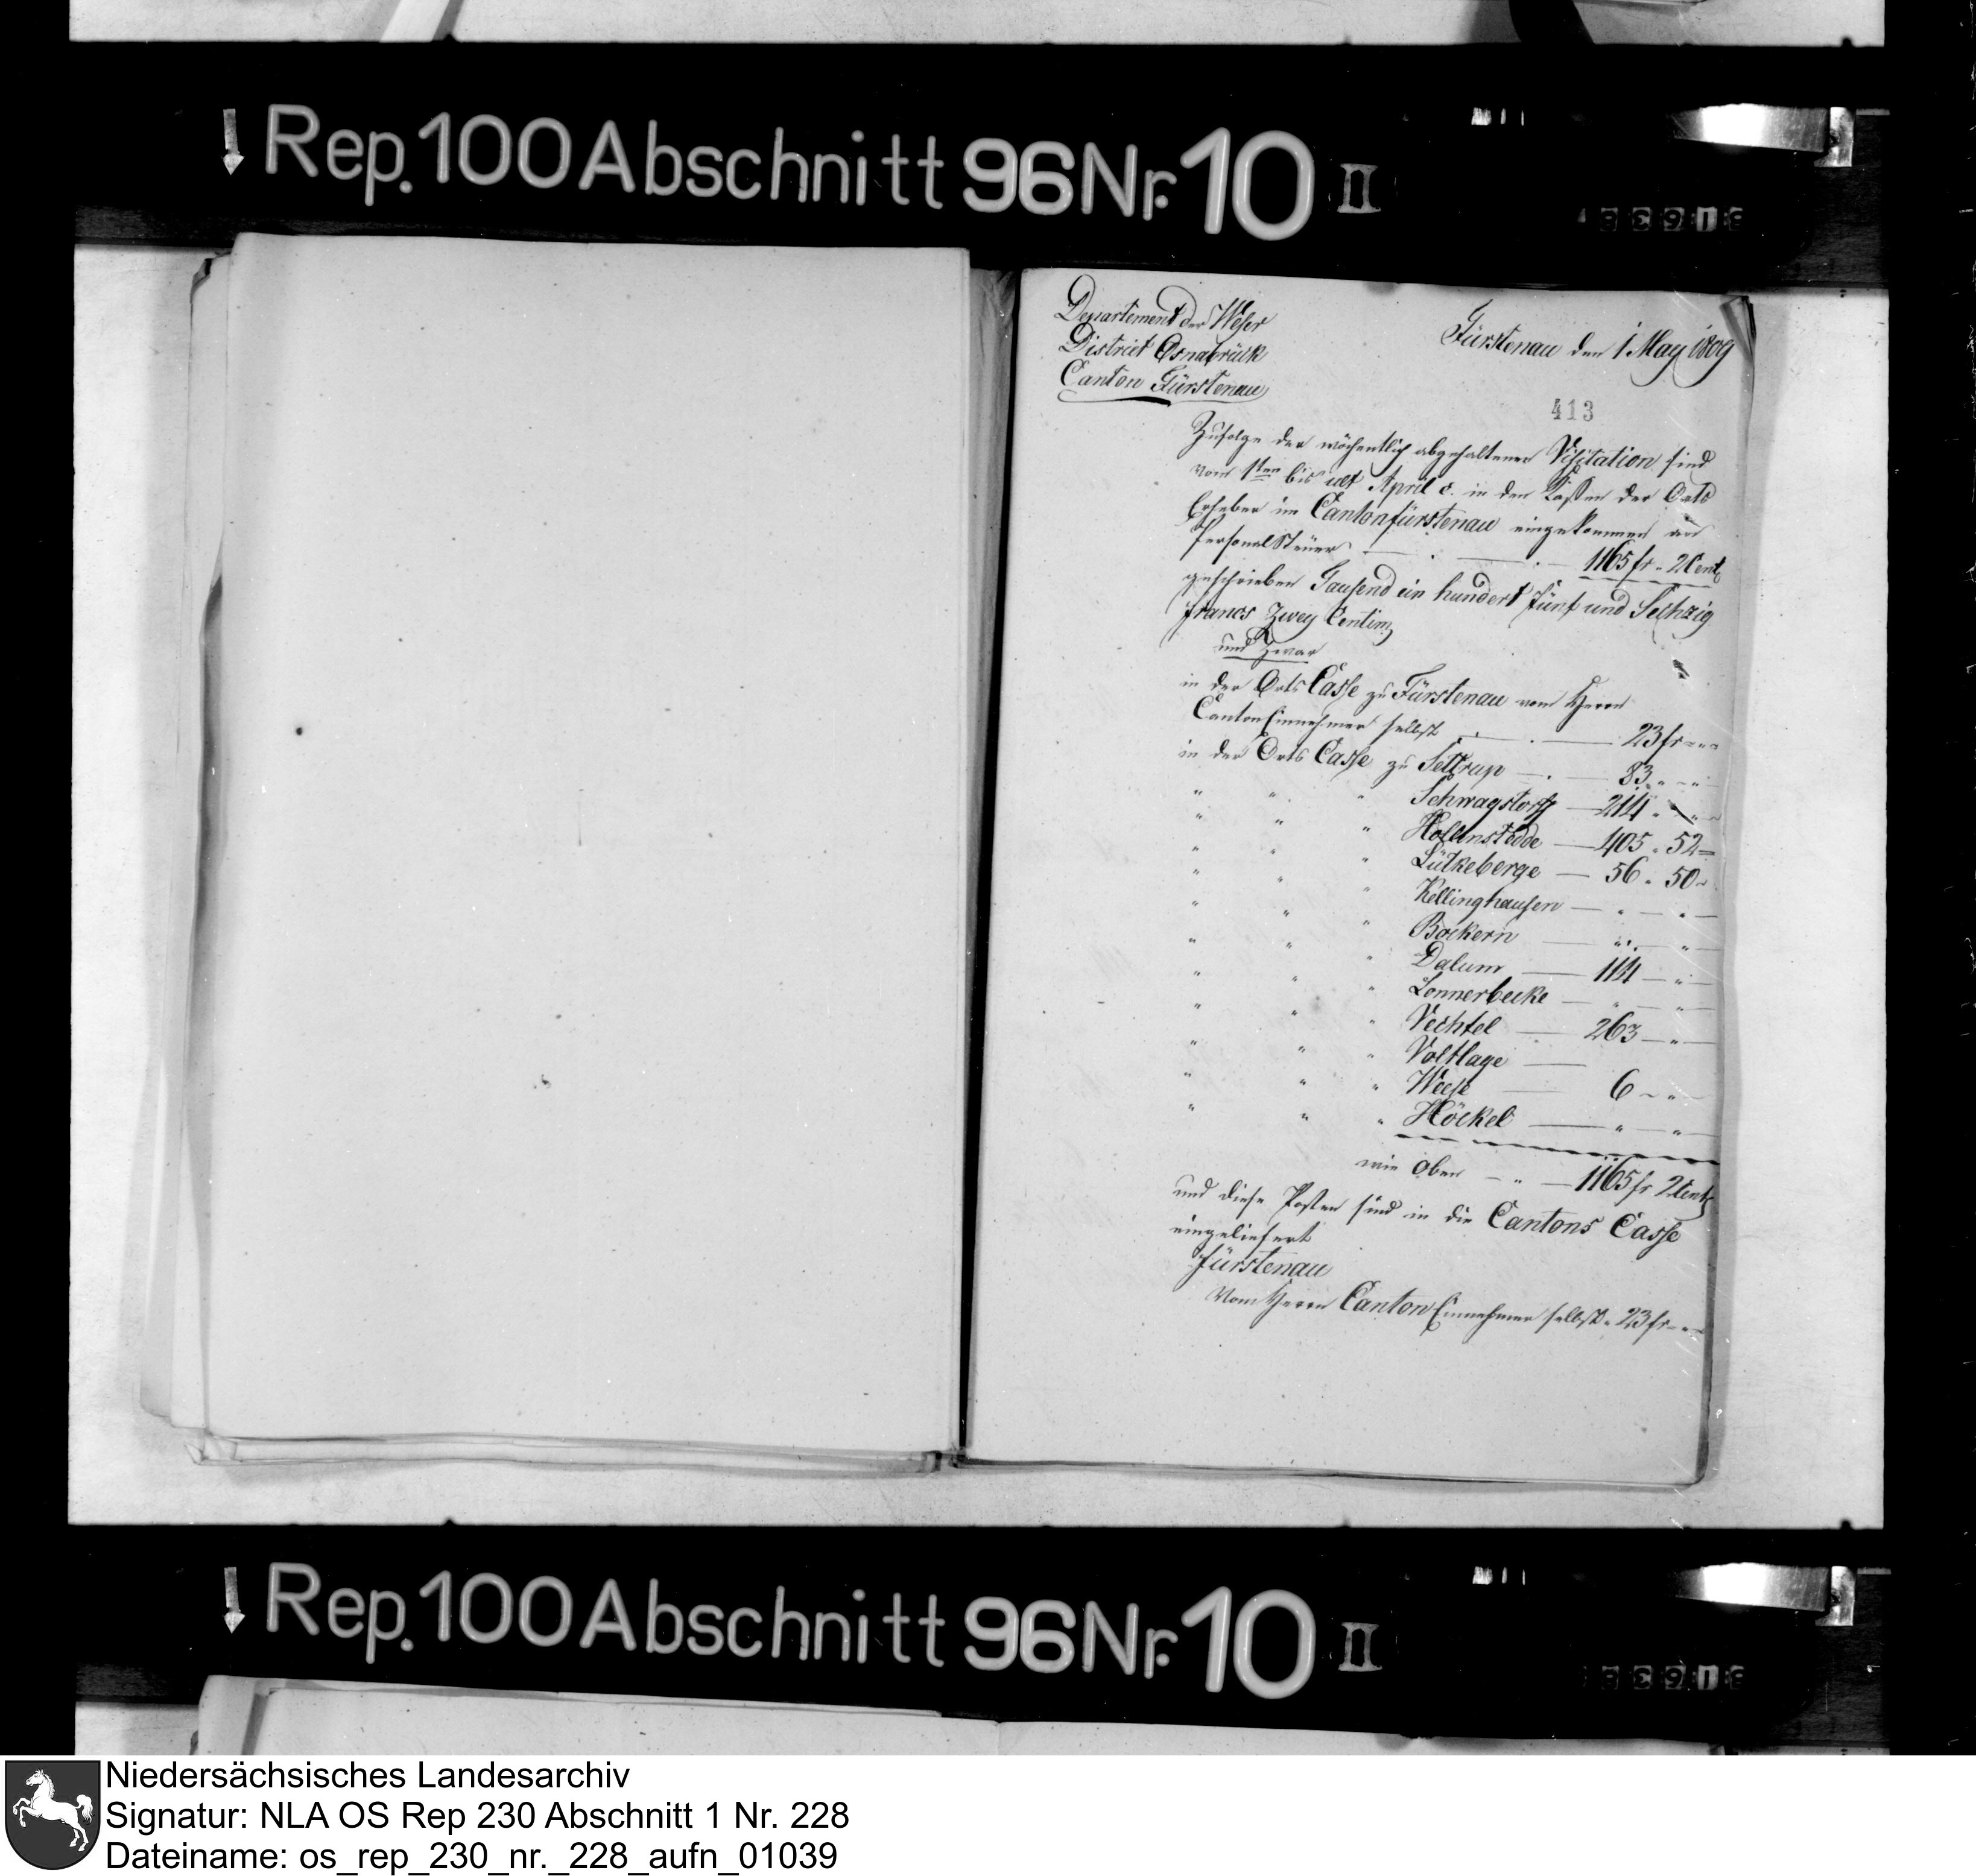 Rep. 100 Abschnitt 96 Nr. 10 II
Departement der Weser
District Osnabrück
Canton Fürstenau
Fürstenau den 1 May 1809
413
Zufolge der wöchentlich abgehaltenen Visitation sind
vom 1ten bis ult April c. in den Cassen der Orts
Erheber im Canton fürstenau eingekommen an
Personal Steuer — . — . — 1165 fr „ 2 Cent
geschrieben Tausend ein hundert fünf und Sechzig
francs Zwey Centim
und Zwar
in der Orts Casse zu Fürstenau vom Herrn
Canton Einnehmer selbst — . — 23 fr „ „
in der Orts Casse zu Settrup — . — 83 „ „
„ „ „ Schwagstorff — 214 „ „
„ „ „ Hollenstedde — 405 „ 52
„ „ „ Lütkeberge — 56 „ 50
„ „ „ Kellinghausen — „ — „
„ „ „ Bockern — „ — „
„ „ „ Dalum — 114 — „
„ „ „ Lonnerbecke — „ — „
„ „ „ Vechtel — 263 — „
„ „ „ Voltlage —
„ „ „ Weese — 6 „ „
„ „ „ Höckel — „ — „
wie oben — „ — 1165 fr 2 Cent
und diese Posten sind in die Cantons Casse
eingeliefert
fürstenau
Vom Herrn Canton Einnehmer selbst „ 23 fr „ „
Rep. 100 Abschnitt 96 Nr. 10 II
Niedersächsisches Landesarchiv
Signatur: NLA OS Rep 230 Abschnitt 1 Nr. 228
Dateiname: os_rep_230_nr._228_aufn_01039